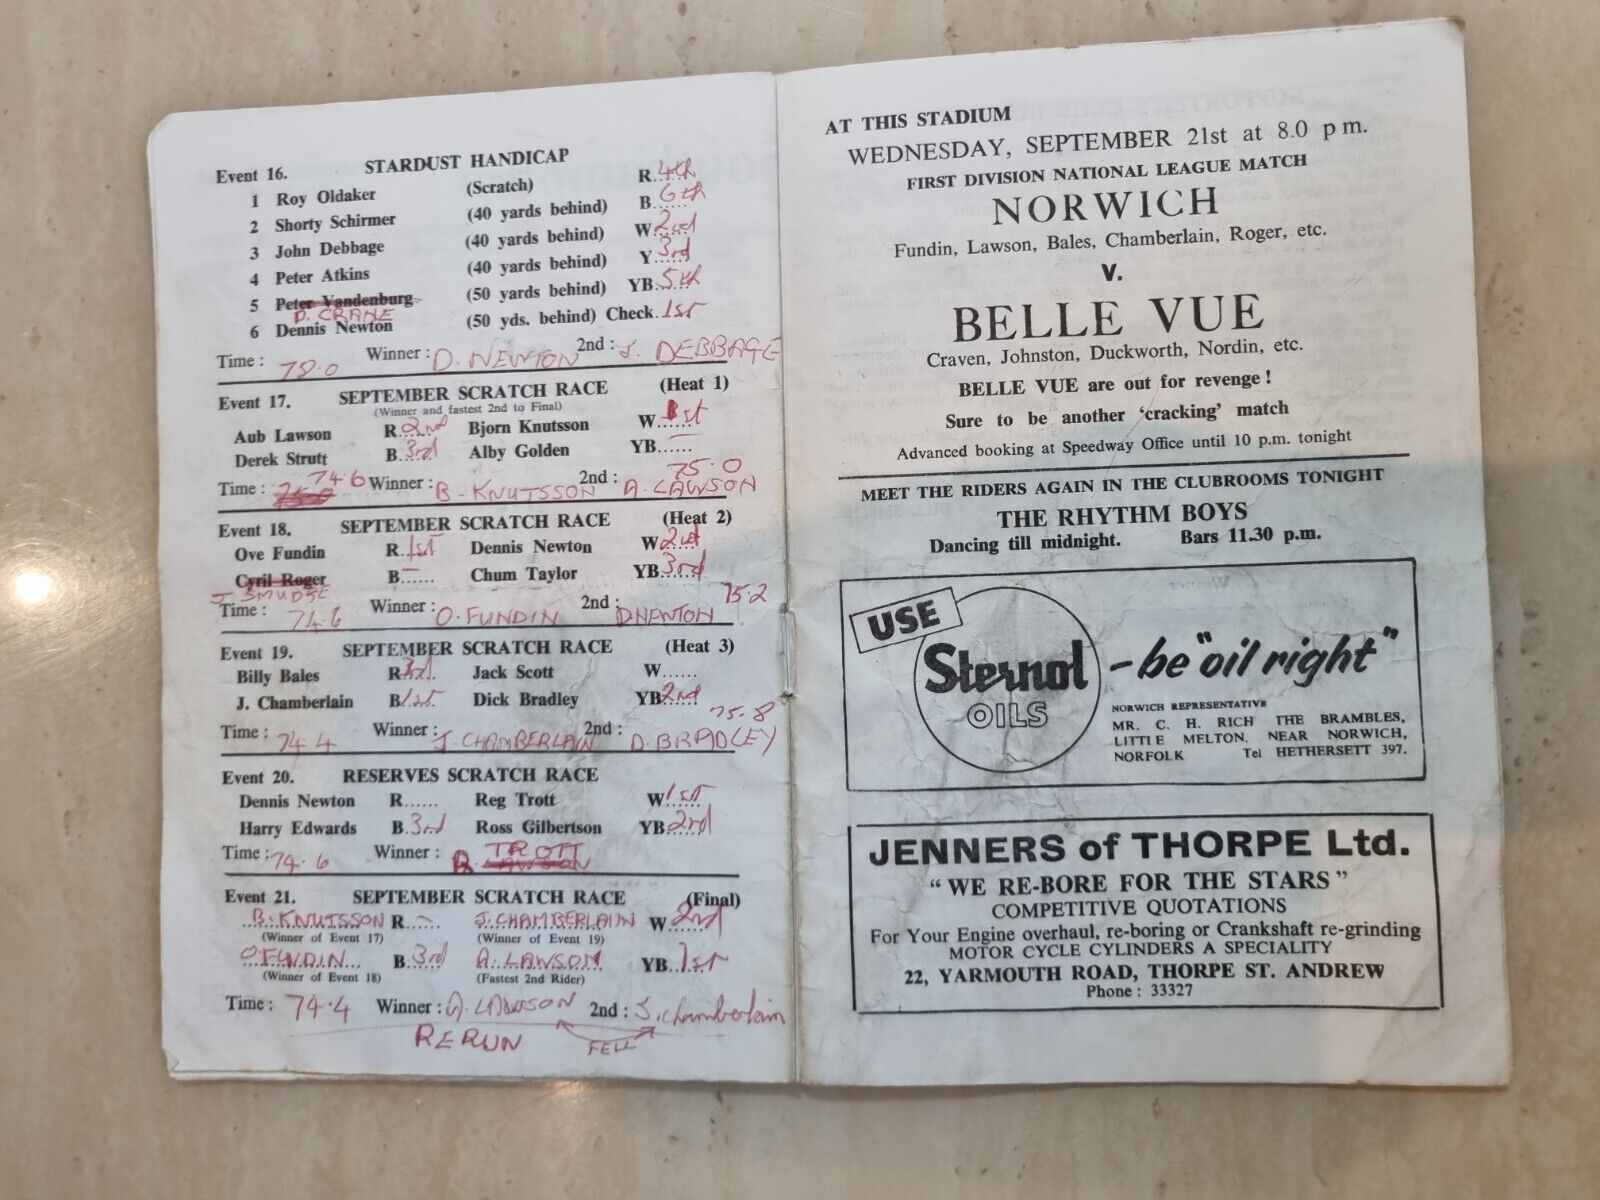 Event 16. STARDUST HANDICAP
1 Roy Oldaker (Scratch) R...... 4th
2 Shorty Schirmer (40 yards behind) B...... 6th
3 John Debbage (40 yards behind) W...... 2nd
4 Peter Atkins (40 yards behind) Y...... 3rd
5 Peter Vandenburg (50 yards behind) YB...... 5th
D. CRANE
6 Dennis Newton (50 yds. behind) Check...... 1st
Time : 78.0 Winner : D. NEWTON 2nd : J. DEBBAGE
Event 17. SEPTEMBER SCRATCH RACE (Heat 1)
(Winner and fastest 2nd to Final)
Aub Lawson R...... 2nd Bjorn Knutsson W...... 1st
Derek Strutt B...... 3rd Alby Golden YB...... –
74.6 75.0
Time : Winner : B. KNUTSSON 2nd : A. LAWSON
Event 18. SEPTEMBER SCRATCH RACE (Heat 2)
Ove Fundin R...... 1st Dennis Newton W...... 2nd
Cyril Roger B...... – Chum Taylor YB...... 3rd
J. SMUDGE 75.2
Time : 74.6 Winner : O. FUNDIN 2nd : D NEWTON
Event 19. SEPTEMBER SCRATCH RACE (Heat 3)
Billy Bales R...... 3rd Jack Scott W......
J. Chamberlain B...... 1st Dick Bradley YB...... 2nd
75.8
Time : 74.4 Winner : J. CHAMBERLAIN 2nd : D. BRADLEY
Event 20. RESERVES SCRATCH RACE
Dennis Newton R...... Reg Trott W...... 1st
Harry Edwards B...... 3rd Ross Gilbertson YB...... 2nd
Time : 74.6 Winner : R. TROTT
LAWSON
Event 21. SEPTEMBER SCRATCH RACE (Final)
B. KNUTSSON R...... – J. CHAMBERLAIN W...... 2nd
(Winner of Event 17) (Winner of Event 19)
O FUNDIN B...... 3rd A. LAWSON YB...... 1st
(Winner of Event 18) (Fastest 2nd Rider)
Time : 74.4 Winner : A. LAWSON 2nd : J. Chamberlain
RERUN FELL
AT THIS STADIUM
WEDNESDAY, SEPTEMBER 21st at 8.0 p m.
FIRST DIVISION NATIONAL LEAGUE MATCH
NORWICH
Fundin, Lawson, Bales, Chamberlain, Roger, etc.
V.
BELLE VUE
Craven, Johnston, Duckworth, Nordin, etc.
BELLE VUE are out for revenge !
Sure to be another ‘cracking’ match
Advanced booking at Speedway Office until 10 p.m. tonight
MEET THE RIDERS AGAIN IN THE CLUBROOMS TONIGHT
THE RHYTHM BOYS
Dancing till midnight. Bars 11.30 p.m.
USE
Sternol
OILS
– be "oil right"
NORWICH REPRESENTATIVE
MR. C. H. RICH THE BRAMBLES,
LITTLE MELTON, NEAR NORWICH,
NORFOLK Tel HETHERSETT 397.
JENNERS of THORPE Ltd.
“ WE RE-BORE FOR THE STARS ”
COMPETITIVE QUOTATIONS
For Your Engine overhaul, re-boring or Crankshaft re-grinding
MOTOR CYCLE CYLINDERS A SPECIALITY
22, YARMOUTH ROAD, THORPE ST. ANDREW
Phone : 33327